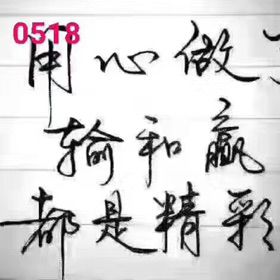 0518
用心做
输和赢
都是精彩